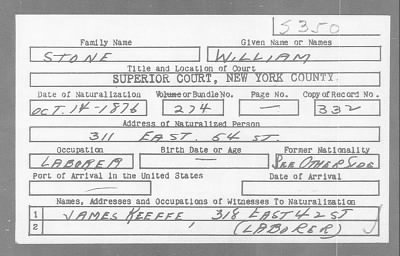 S350
Family Name Given Name or Names
STONE WILLIAM
Title and Location of Court
SUPERIOR COURT, NEW YORK COUNTY.
Date of Naturalization Volume or Bundle No. Page No. Copy of Record No.
OCT. 14-1876 274 — 332
Address of Naturalized Person
311 EAST. 54 ST.
Occupation Birth Date or Age Former Nationality
LABORER — SEE OTHER SIDE
Port of Arrival in the United States Date of Arrival
—
Names, Addresses and Occupations of Witnesses To Naturalization
1 JAMES KEEFFE, 318 EAST 42 ST
2 (LABORER)